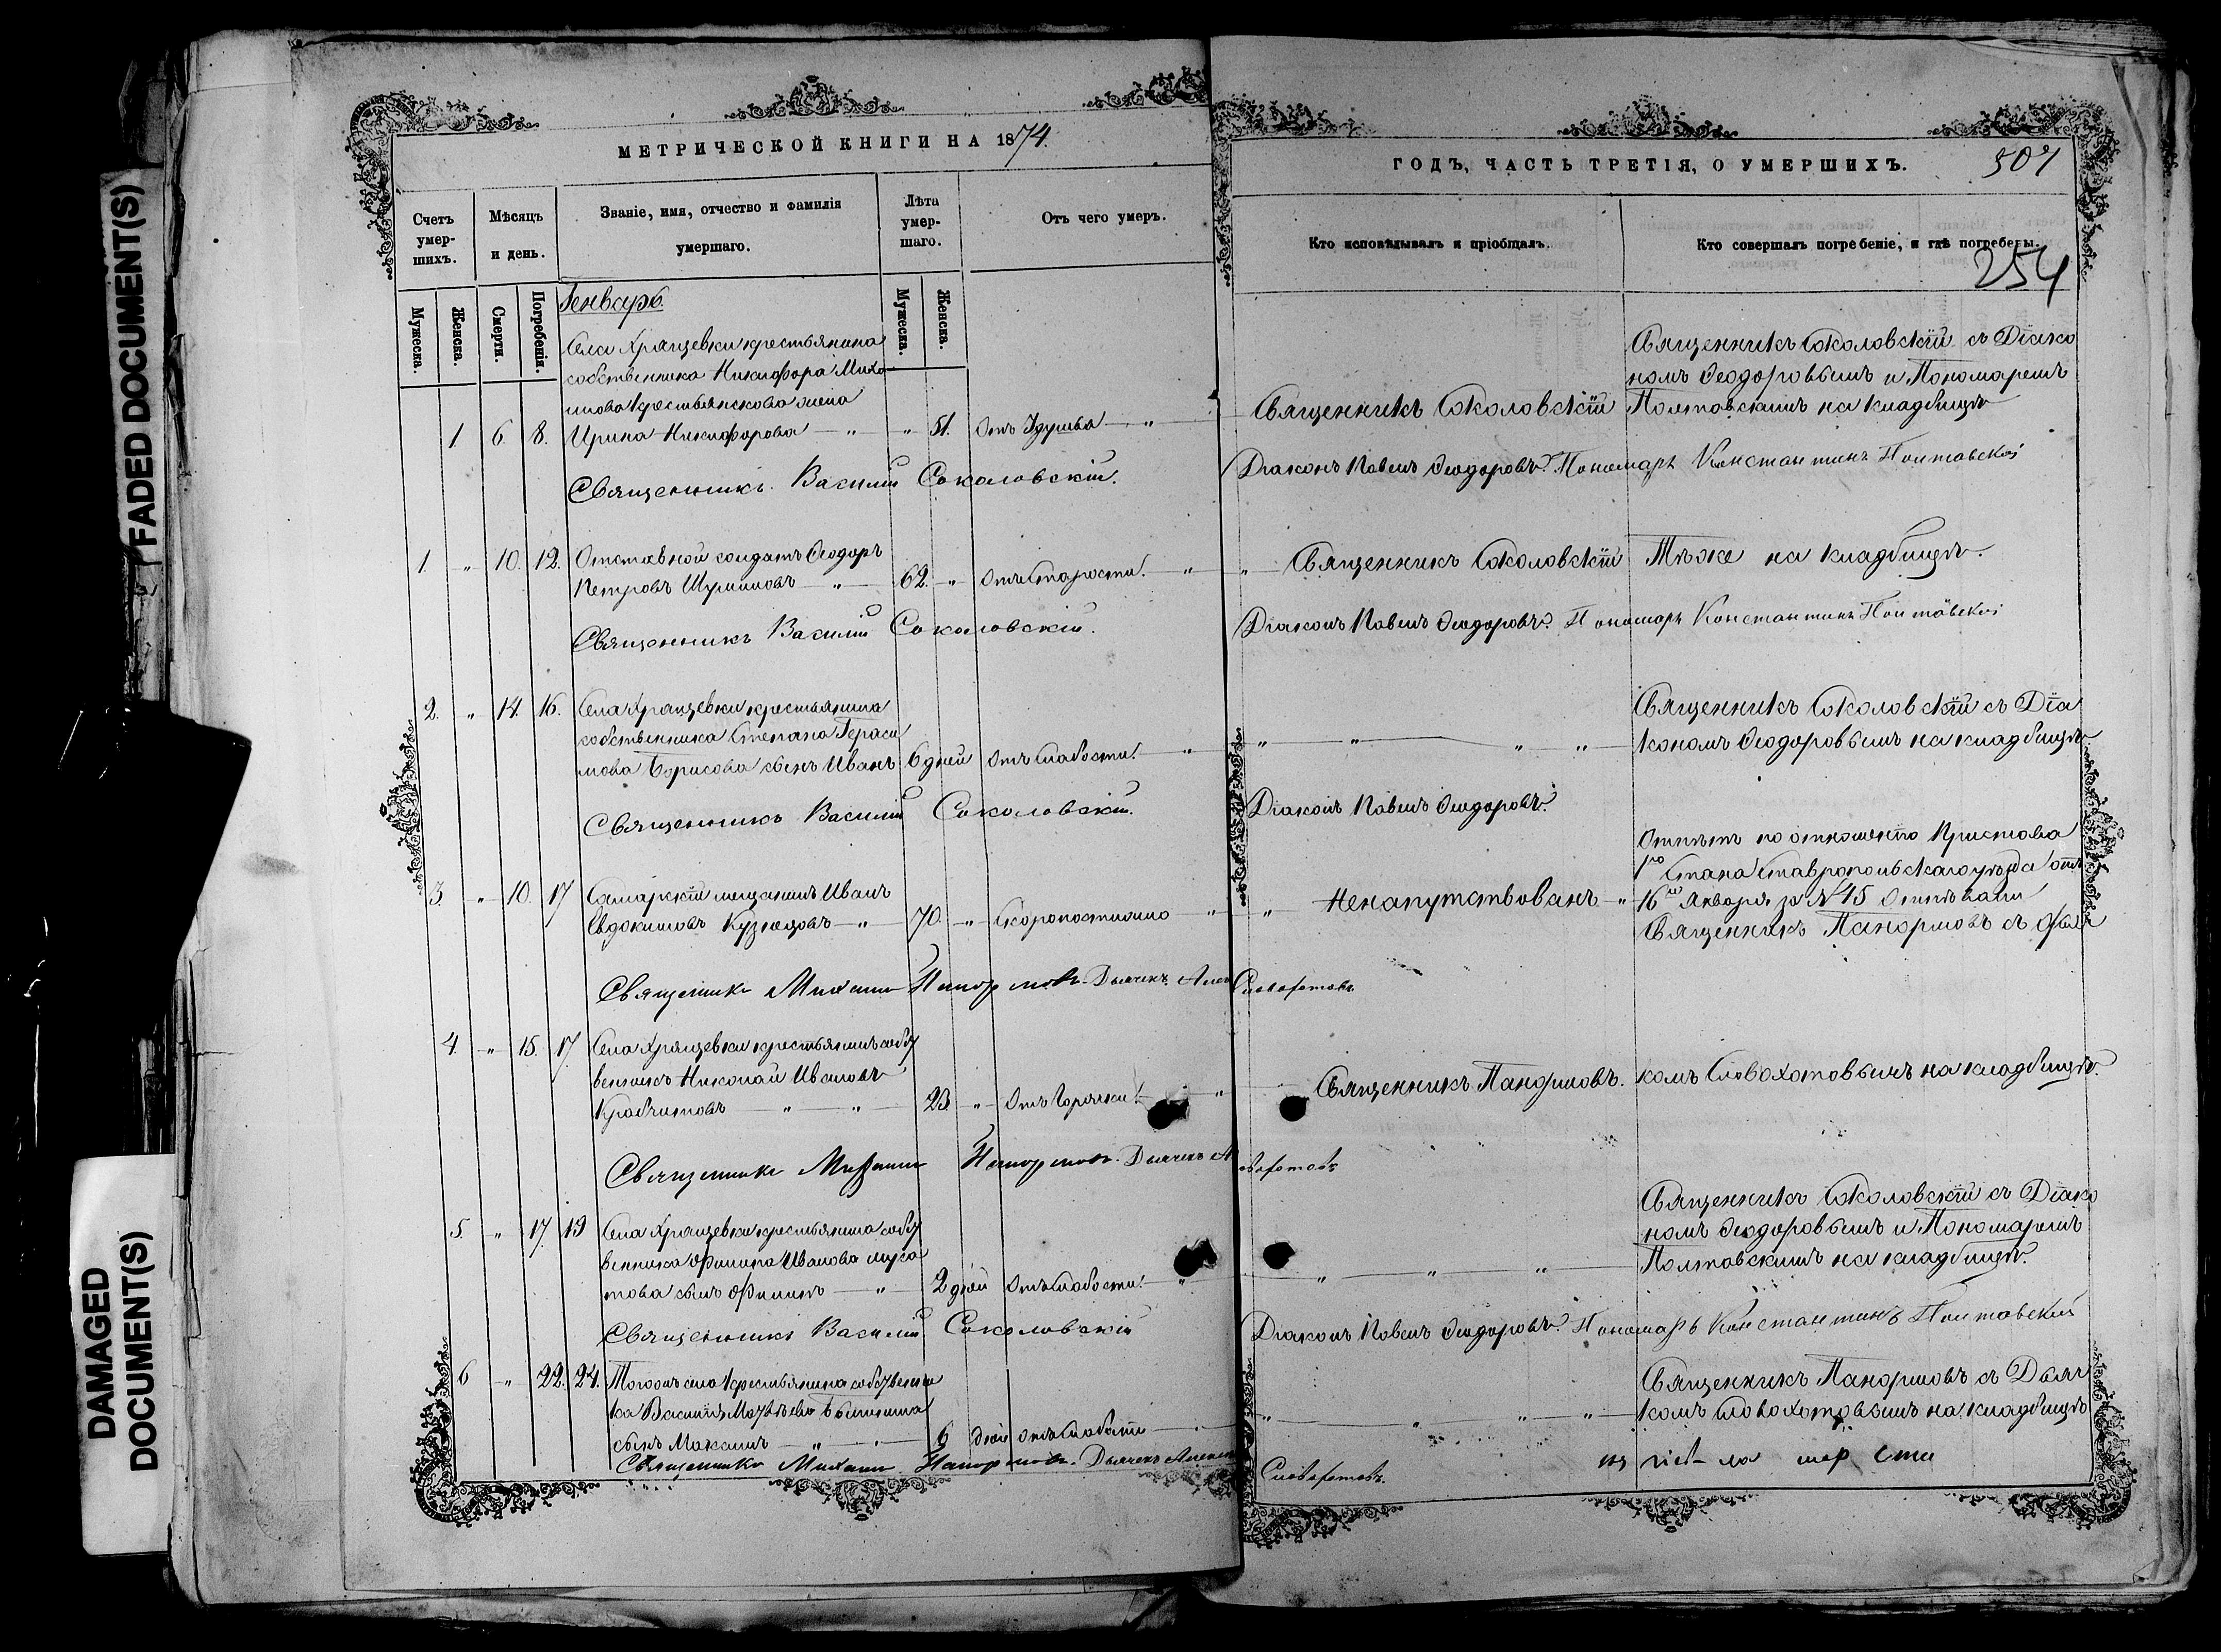 МЕТРИЧЕСКОЙ КНИГИ НА 1874.
Счетъ умер-шихъ.
Мѣсяцъ и день.
Званіе, имя, отчество и фамилія умершаго.
Лѣта умер-шаго.
Отъ чего умеръ.
Мужеска.
Женска.
Смерти.
Погребенія.
Мужеска.
Женска.
Генварь.
Села Хрящевки крестьянина
собственника Никифора
жена
1 6. 8. Ирина Никифорова — " — " 51. Отъ Удушья — "
Священникъ Василій Соколовскій.
1. " 10. 12. Отставной солдатъ Ѳеодоръ
Петровъ — " — 62. " Отъ Старости. "
Священникъ Василій Соколовскій.
2. " 14. 16. Села Хрящевки крестьянина
собственника Степана Гераси
мова Борисова сынъ Иванъ 6 дней Отъ Слабости. "
Священникъ Василій Соколовскій.
3. " 10. 17 Самарскій мещанинъ Иванъ
Евдокимовъ Кузнецовъ — " — 70. " Скоропостижно "
Священникъ Михаилъ Панормовъ. Дьячекъ
4. " 15. 17. Села Хрящевки крестьянинъ собст
венникъ Николай Ивановъ
— " — " — 23. " Отъ Горячки. "
Священникъ Михаилъ Панормовъ. Дьячекъ
5. " 17. 19 Села Хрящевки крестьянина собст
венника Филипа Иванова
сынъ Филипъ — " — 2 дней Отъ Слабости. "
Священникъ Василій Соколовскій
6 " 22. 24. Тогожъ села крестьянина собственни
ка Василія
сынъ Максимъ — " — 6 дней Отъ Слабости
Священникъ Михаилъ Панормовъ. Дьячекъ
ГОДЪ, ЧАСТЬ ТРЕТІЯ, О УМЕРШИХЪ.
507
Кто исповѣдывалъ и пріобщалъ.
Кто совершалъ погребеніе, и гдѣ погребены.
254
Священникъ Соколовскій съ Діако
номъ Ѳеодоровымъ и Пономаремъ
Священникъ Соколовскій Полтавскимъ на кладбищѣ
Діаконъ Павелъ Ѳеодоровъ. Пономарь Константинъ Полтавскій
" Священникъ Соколовскій Тѣже на кладбищѣ.
Діаконъ Павелъ Ѳеодоровъ. Пономарь Константинъ Полтавскій
Священникъ Соколовскій съ Діа
" " " " кономъ Ѳеодоровымъ на кладбищѣ
Діаконъ Павелъ Ѳеодоровъ.
Отпѣтъ по отношенію Пристава
1го Стана Ставропольскаго уѣзда отъ
" Ненапутствованъ " 16го Января за № 15 Отпѣвали
Священникъ Панормовъ съ Дьяч
Словохотовъ.
Священникъ Панормовъ. комъ Словохотовымъ на кладбищѣ.
Священникъ Соколовскій съ Діако
номъ Ѳеодоровымъ и Пономаремъ
" " " Полтавскимъ на кладбищѣ.
Діаконъ Павелъ Ѳеодоровъ. Пономарь Константинъ Полтавскій
Священникъ Панормовъ съ Дьяч
" " " " комъ Словохотовымъ на кладбищѣ
Словохотовъ.
FADED DOCUMENT(S)
DAMAGED
DOCUMENT(S)